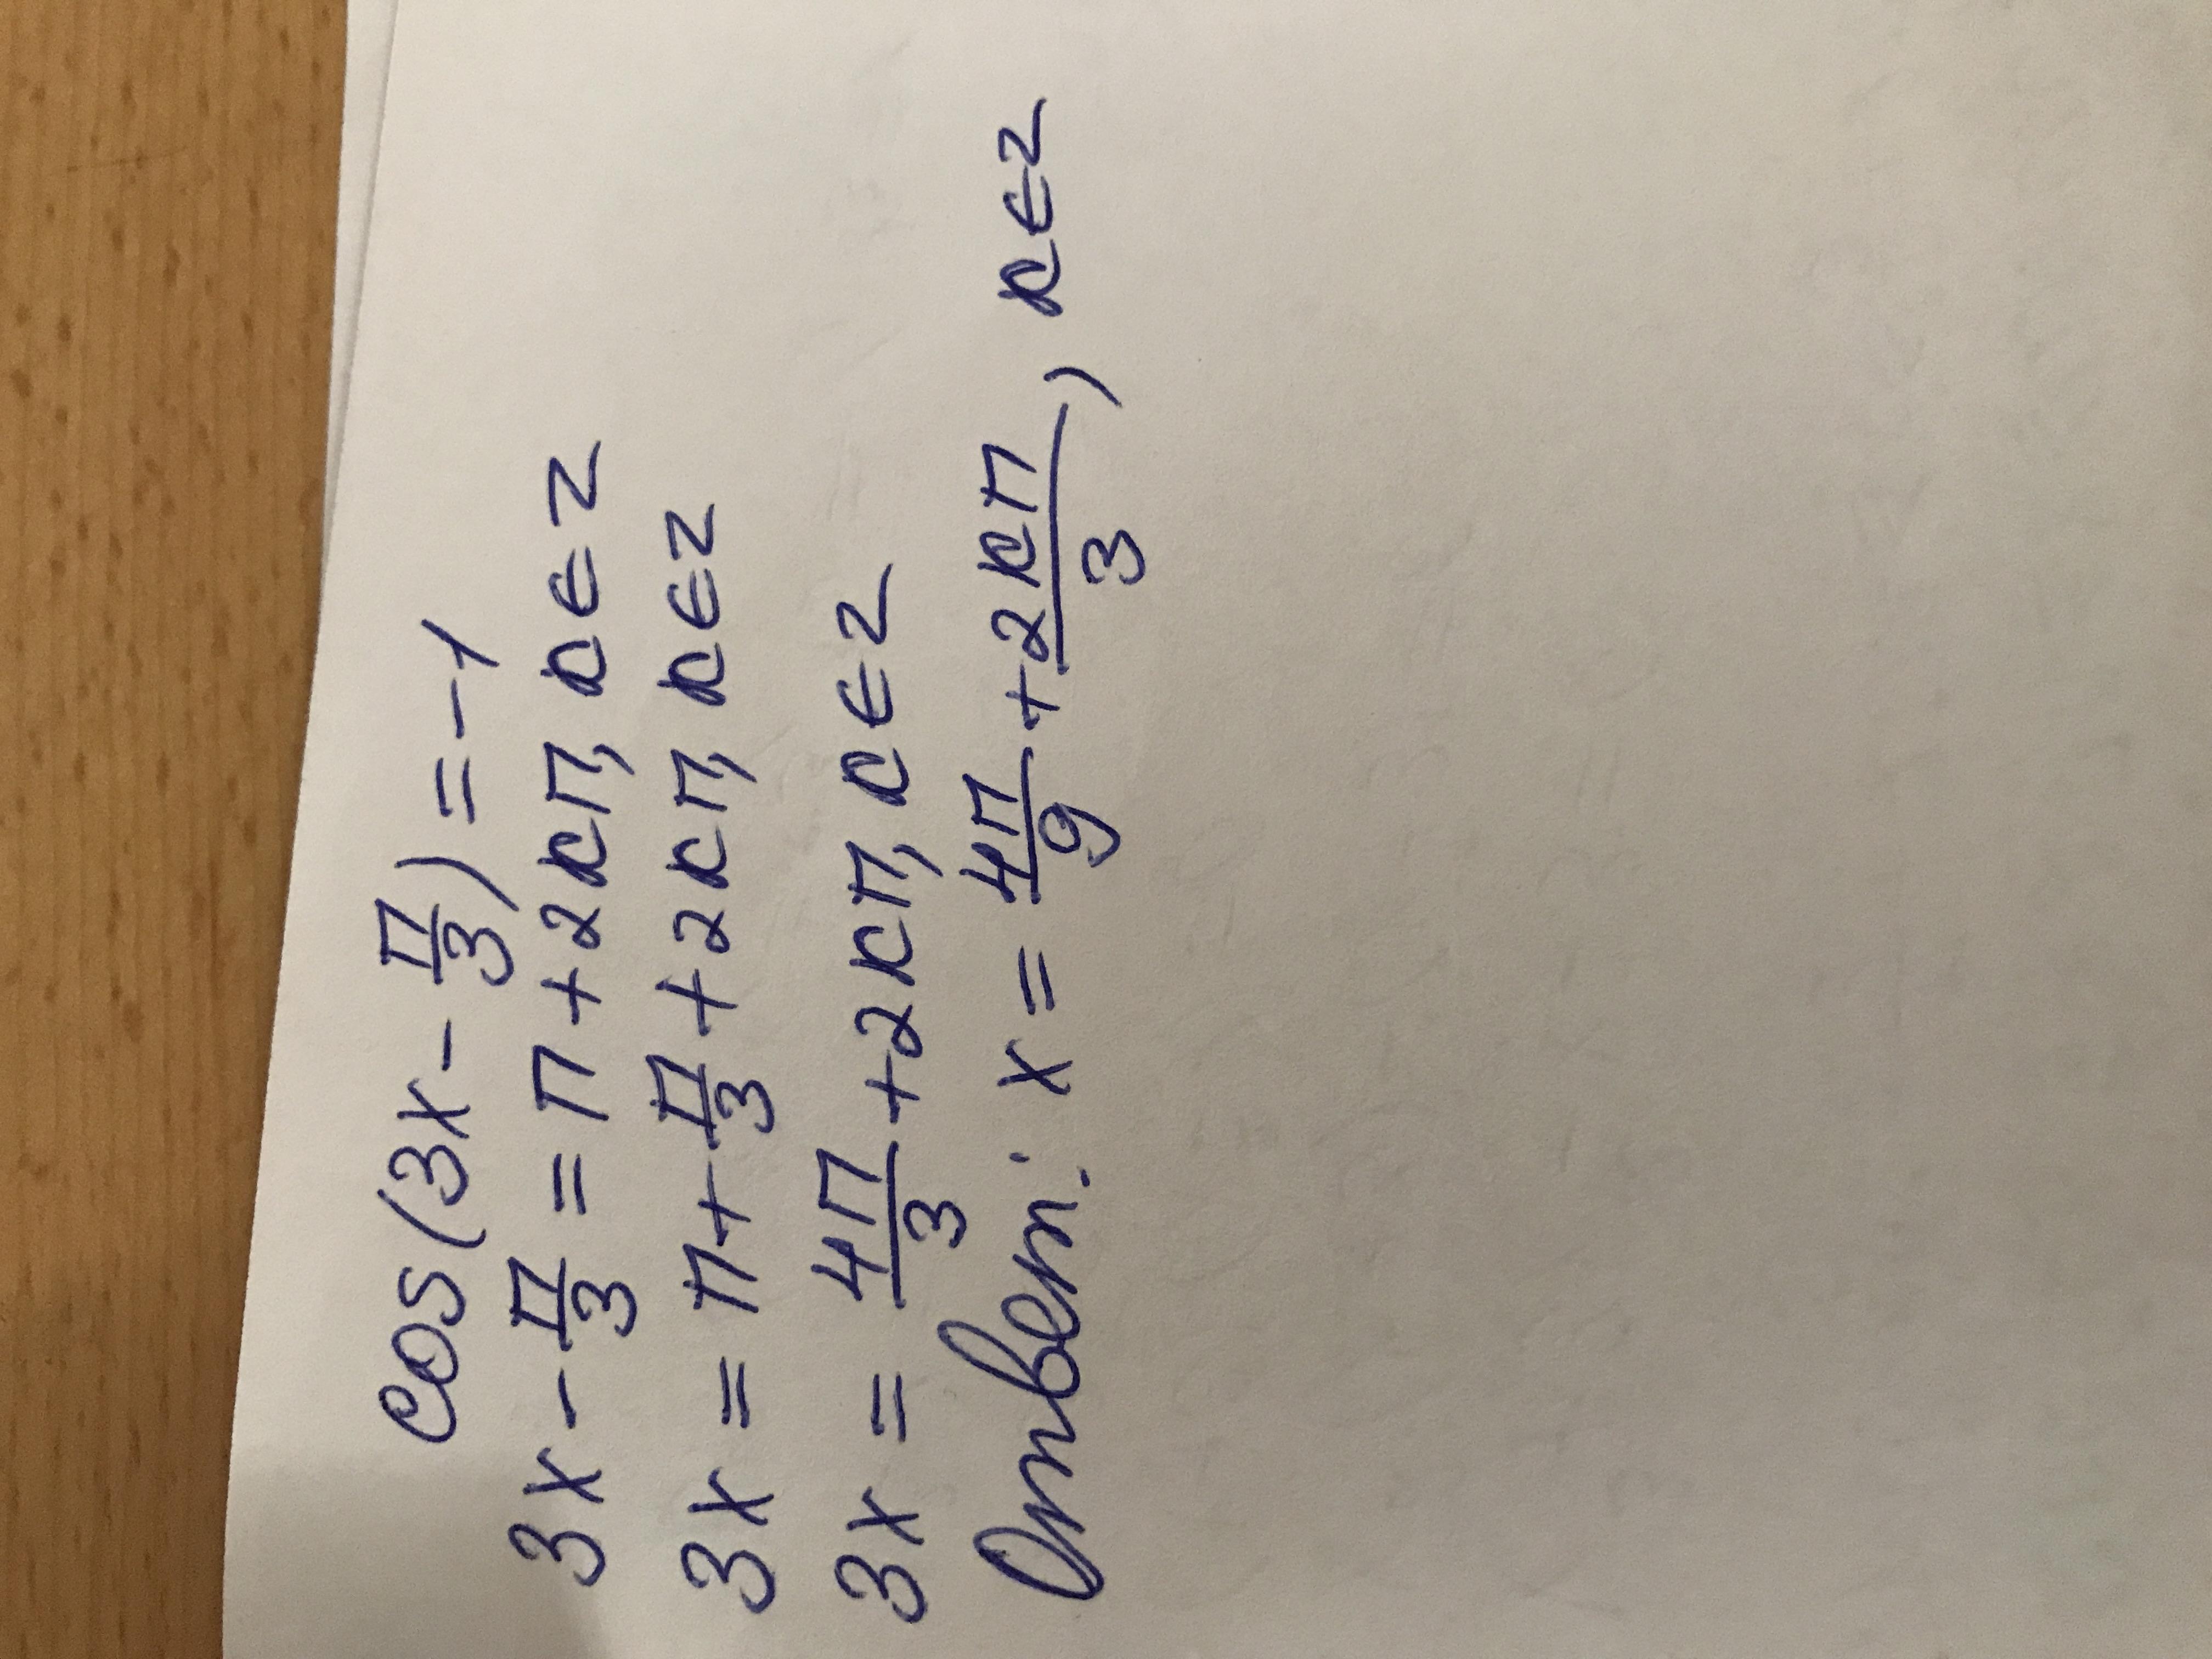 cos(3x - π/3) = -1
3x - π/3 = π + 2кπ, к∈z
3x = π + π/3 + 2кπ, к∈z
3x = 4π/3 + 2кπ, к∈z
Ответ: x = 4π/9 + 2кπ/3, к∈z